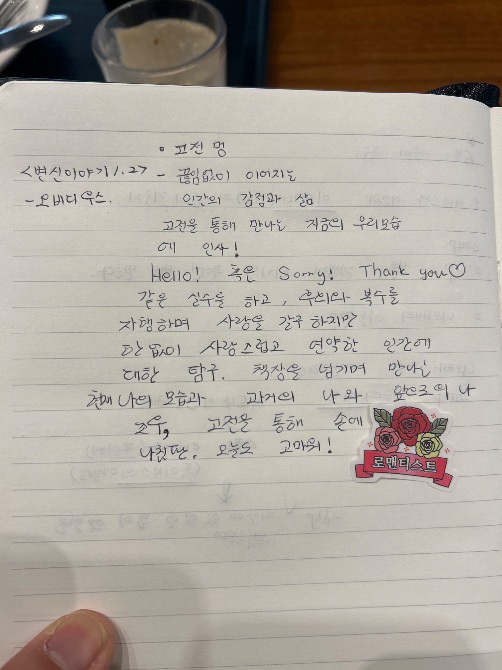 • 고전 멍
<변신이야기 1.2> - 끊임없이 이어지는
- 오비디우스. 인간의 감정과 삶
고전을 통해 만나는 지금의 우리모습
에 인사!
Hello! 혹은 Sorry! Thank you♡
같은 실수를 하고, 후회와 복수를
자행하며 사랑을 갈구하지만
한없이 사랑스럽고 연약한 인간에
대한 탐구. 책장을 넘기며 만나는
현재 나의 모습과 과거의 나와 앞으로의 나
조우, 고전을 통해 손에
나침반. 오늘도 고마워!
로맨티스트